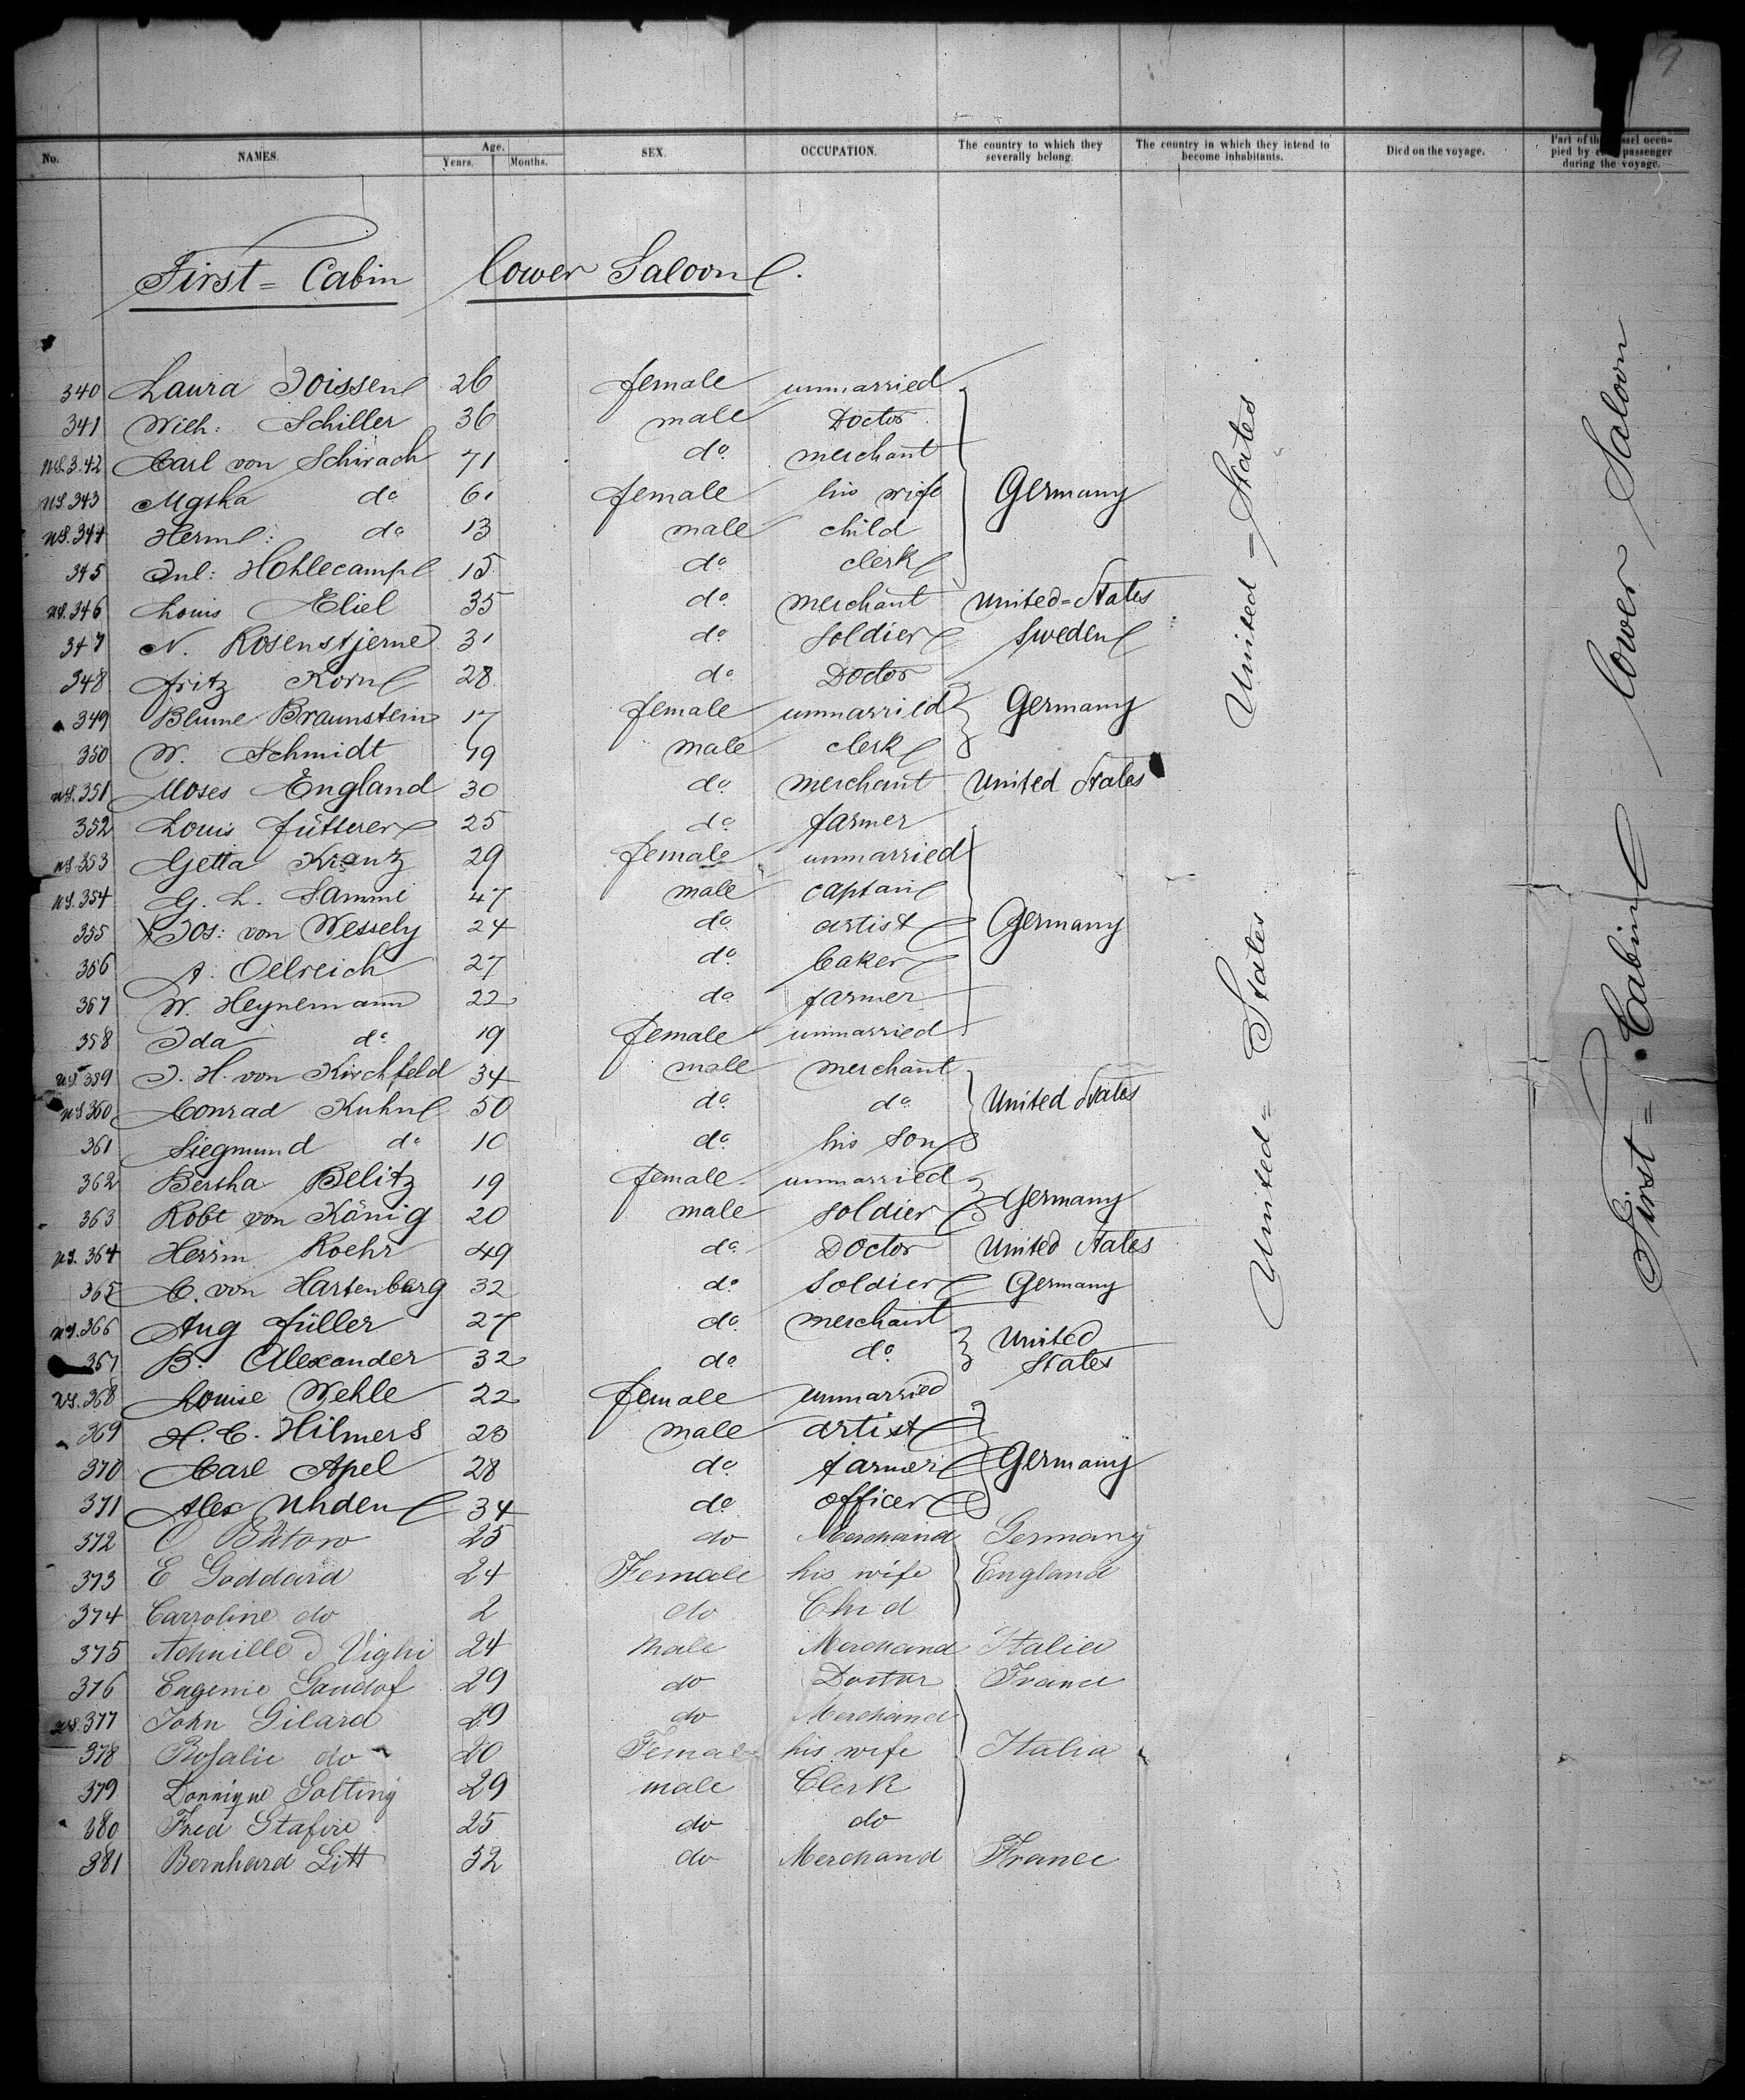 9
No. NAMES. Age. Years. Months. SEX. OCCUPATION. The country to which they severally belong. The country in which they intend to become inhabitants. Died on the voyage. Part of the vessel occupied by each passenger during the voyage.
First = Cabin lower Saloon.
340 Laura Joissen 26 female unmarried
341 Wilh: Schiller 36 male Doctor
342 Carl von Schirach 71 do merchant
343 do 61 female his wife Germany
344 Herm: do 13 male child
345 Jul: Hohlecamp 15 do clerk
346 Louis Eliel 35 do merchant United=States
347 N. Rosenstjerne 31 do soldier Sweden
348 Fritz Korn 28 do Doctor
349 Blume Braunstein 17 female unmarried Germany
350 W. Schmidt 19 male clerk
351 Moses England 30 do merchant United States
352 Louis Fütterer 25 do farmer
353 Getta Krantz 29 female unmarried
354 G. L. Sammi 47 male captain
355 Jos: von Wessely 24 do artist Germany
356 A. Oelreich 27 do baker
357 W. Heynemann 22 do farmer
358 Ida do 19 female unmarried
359 J. H. von Kirchfeld 34 male merchant
360 Conrad Kuhn 50 do do United States
361 Siegmund do 10 do his son
362 Bertha Belitz 19 female unmarried
363 Robt von König 20 male soldier Germany
364 Herrm Koehr 49 do Doctor United States
365 C. von Hartenburg 32 do soldier Germany
366 Aug Füller 27 do merchant United
367 B. Alexander 32 do do States
368 Louise Wehle 22 female unmarried
369 H. C. Hilmers 23 male artist
370 Carl Apel 28 do farmer Germany
371 Alex Uhden 34 do officer
372 O Bütow 25 do Merchand Germany
373 E Goddard 24 Female his wife England
374 Carroline do 2 do Chid
375 Vighi 24 male Merchand Italia
376 Eugenie 29 do Doctor France
377 John Gilard 29 do Merchand
378 Rosalie do 20 Female his wife Italia
379 29 male Clerk
380 Fred Stafire 25 do do
381 Bernhard Litt 52 do Merchand France
United = States
United = States
First = Cabin lower Saloon